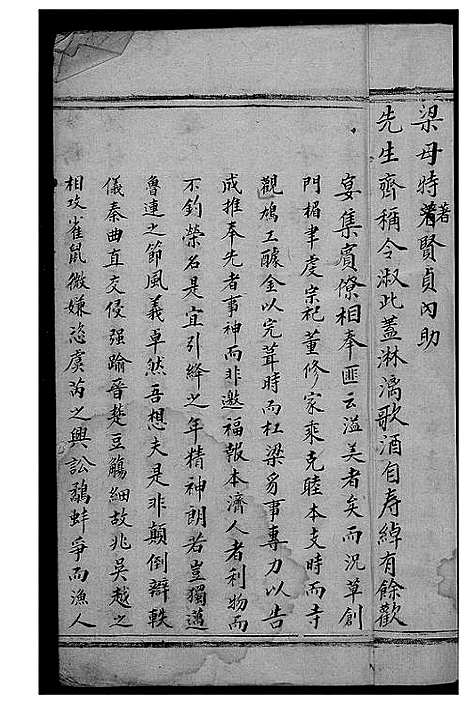 梁母時著賢貞內助
先生齊稱令淑此蓋淋漓歌酒自壽綽有餘歡
宴集賓僚相奉匪云溢美者矣而況草創
門楣聿虔宗祀董修家乘克睦本支時而寺
觀鳩工醵金以完葺時而杠梁易事專力以告
成推奉先者事神而非邀福報本濟人者利物而
不釣榮名是宜引絳之年精神朗若豈獨邁
魯連之節風義卓然吾想夫是非顛倒辯軼
儀秦曲直交侵强踰晉楚豆觴細故兆吳越之
相攻雀鼠微嫌恣虞芮之興訟鷸蚌爭而漁人